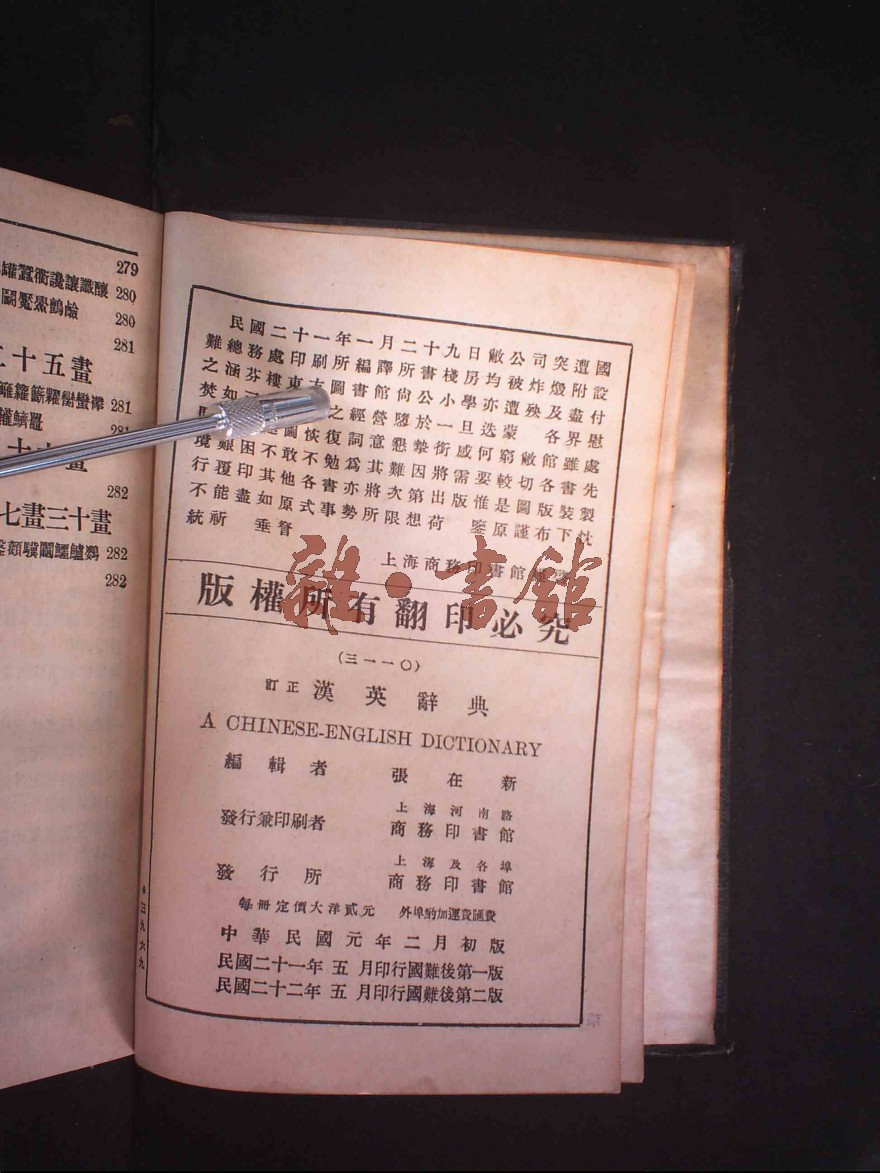 279
280
280
281
二十五畫
281
281
282
七畫三十畫
282
282
民國二十一年一月二十九日敝公司突遭國
難總務處印刷所編譯所書棧房均被炸燬附設
之涵芬樓東方圖書館尚公小學亦遭殃及盡付
焚如之經營隳於一旦迭蒙 各界慰
圖恢復詞意懇摯銜感何窮敝館雖處
境艱困不敢不勉爲其難因將需要較切各書先
行覆印其他各書亦將次第出版惟是圖版裝製
不能盡如原式事勢所限想荷 鑒原謹布下忱
統祈 垂詧
上海商務印書館
雜·書館
版權所有翻印必究
(三一一〇)
訂正 漢英辭典
A CHINESE-ENGLISH DICTIONARY
編輯者 張在新
發行兼印刷者 上海河南路 商務印書館
發行所 上海及各埠 商務印書館
每冊定價大洋貳元 外埠酌加運費匯費
中華民國元年二月初版
民國二十一年五月印行國難後第一版
民國二十二年五月印行國難後第二版
三九六九